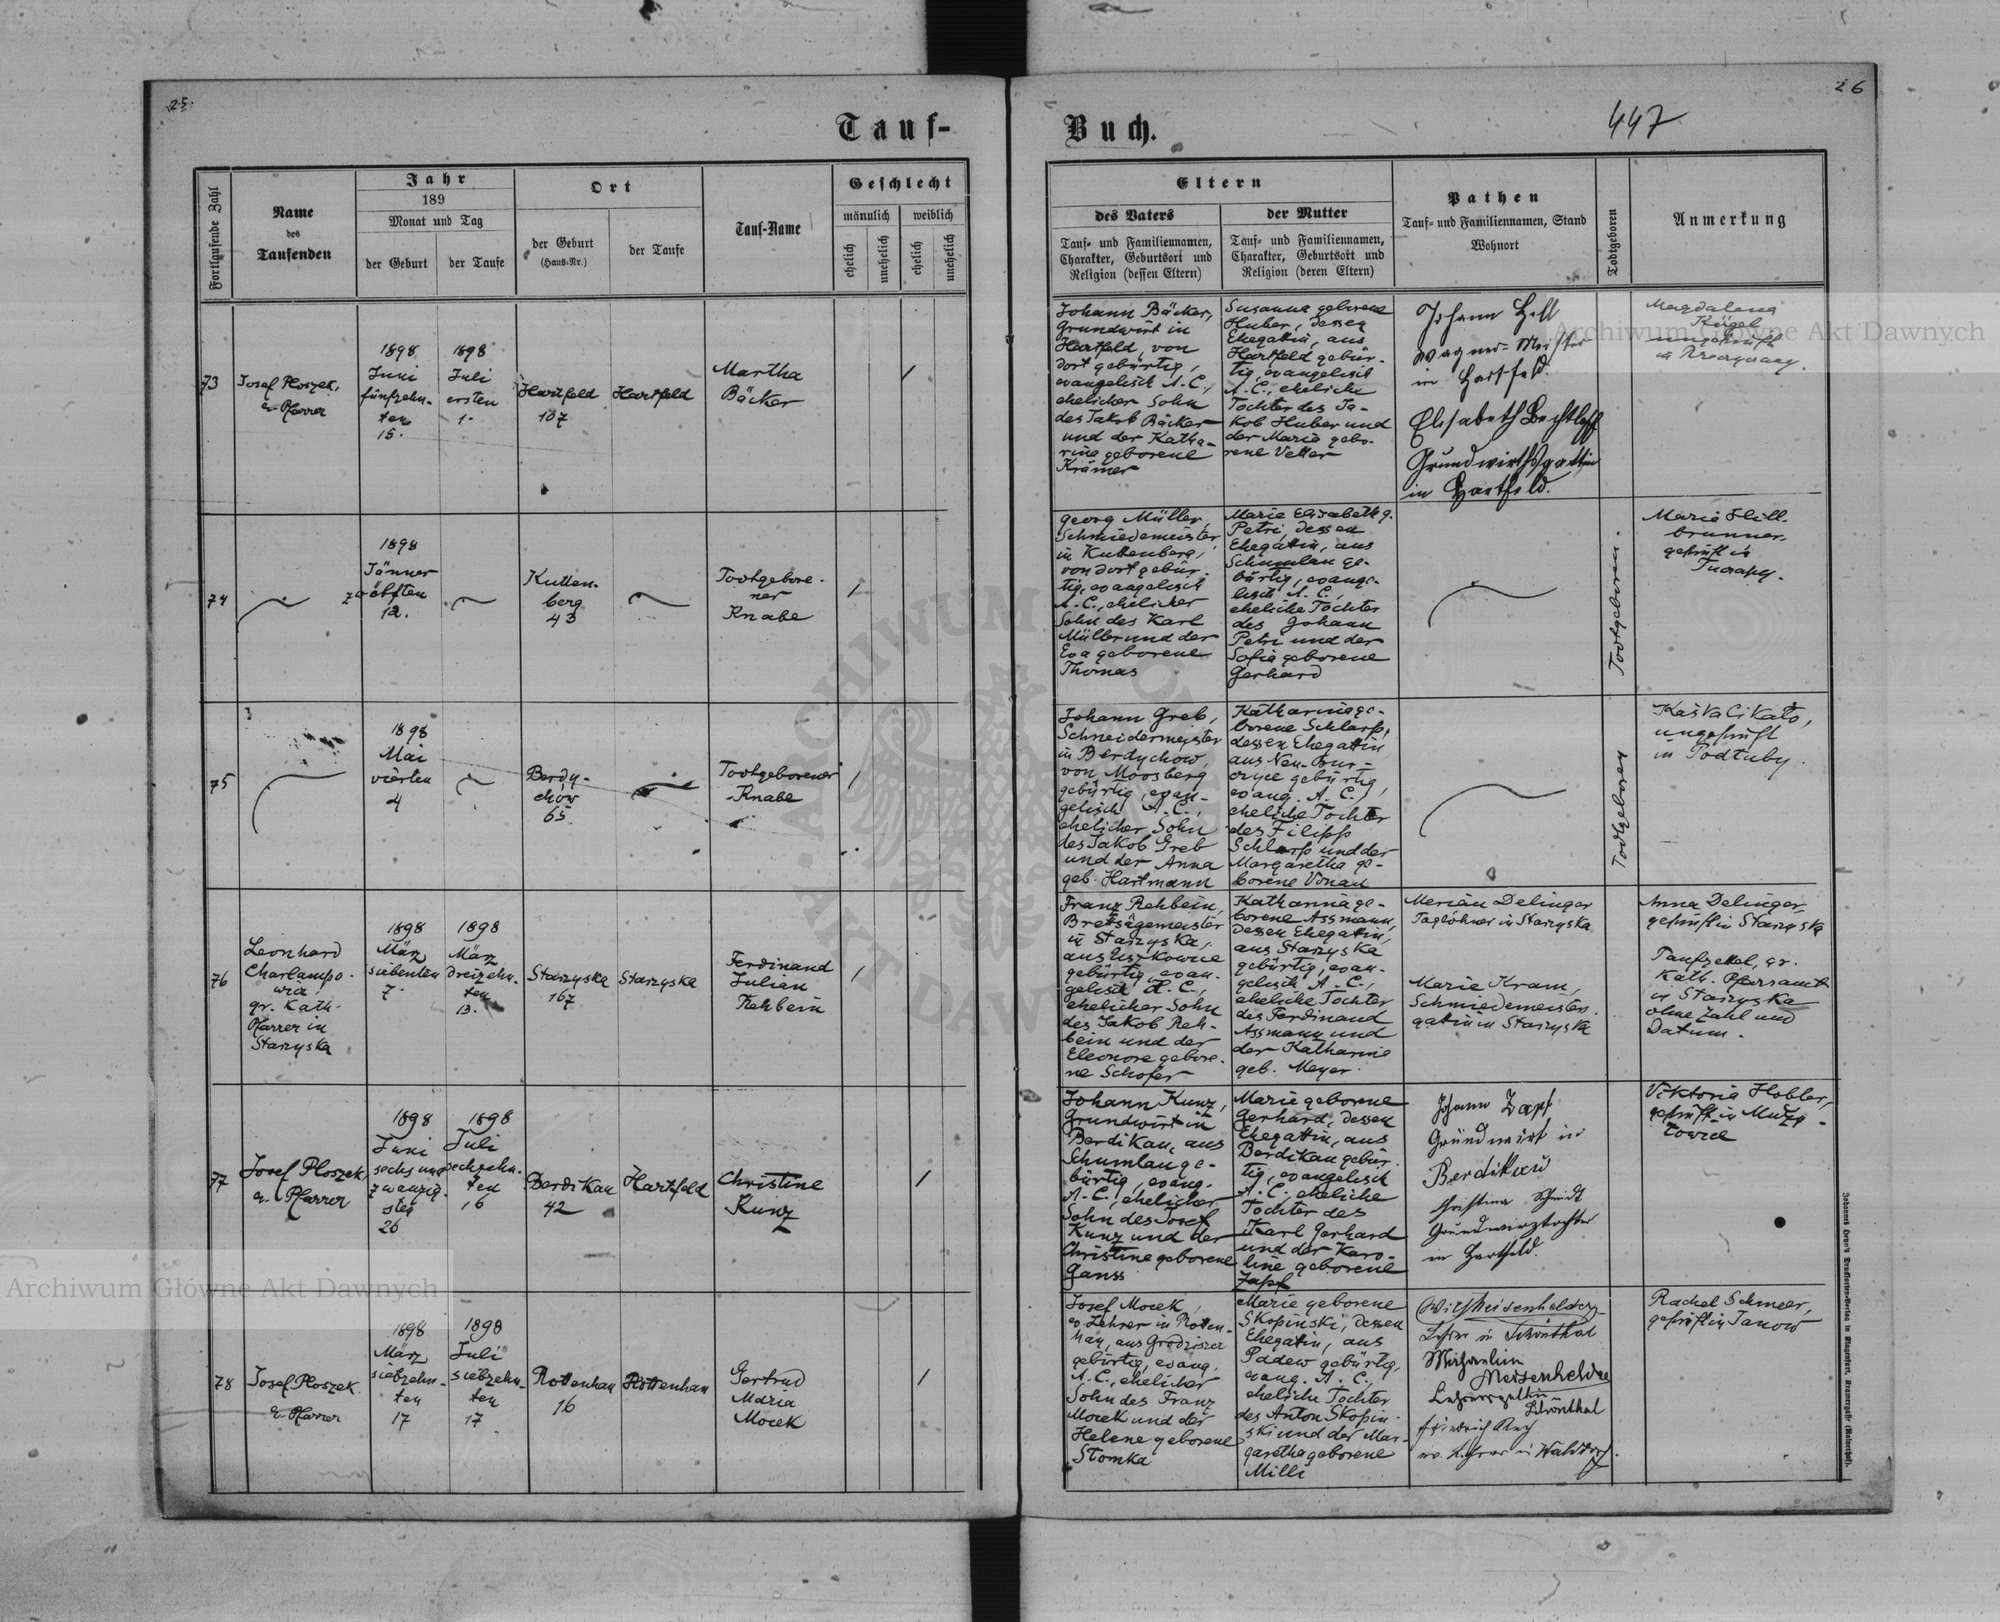 25
26
Tauf-
Buch.
447
Fortlaufende Zahl
Name
des
Taufenden
Jahr
189
Monat und Tag
der Geburt
der Taufe
Ort
der Geburt
(Haus-Nr.)
der Taufe
Tauf-Name
Geschlecht
männlich
weiblich
ehelich
unehelich
ehelich
unehelich
Eltern
des Vaters
Tauf- und Familiennamen,
Charakter, Geburtsort und
Religion (dessen Eltern)
der Mutter
Tauf- und Familiennamen,
Charakter, Geburtsort und
Religion (deren Eltern)
Pathen
Tauf- und Familiennamen, Stand
Wohnort
Todtgeboren
Anmerkung
73
Josef Ploszek,
ev. Pfarrer
1898
Juni
fünfzehn-
ten
15.
1898
Juli
ersten
1.
Hartfeld
107
Hartfeld
Martha
Bäcker
Johann Bäcker,
Grundwirt in
Hartfeld, von
dort gebürtig,
evangelisch A.C.,
ehelicher Sohn
des Jakob Bäcker
und der Katha-
rina geborene
Krämer
Susanna geborene
Huber, dessen
Ehegattin, aus
Hartfeld gebür-
tig, evangelisch
A.C., eheliche
Tochter des Ja-
kob Huber und
der Maria gebo-
rene Vetter
Johann Hell
Wagner-Meister
in Hartfeld.
Elisabeth Bechtloff
Grundwirthsgattin
in Hartfeld.
Magdalena
ungeprüft
in
74
1898
Jänner
zwölften
12.
Kutten-
berg
43
Todtgebore-
ner
Knabe
Georg Müller,
Schmiedemeister
in Kuttenberg,
von dort gebür-
tig, evangelisch
A.C., ehelicher
Sohn des Karl
Müller und der
Eva geborene
Thomas
Marie Elisabeth g.
Petri, dessen
Ehegattin, aus
Schumlau ge-
bürtig, evange-
lisch A.C.,
eheliche Tochter
des Johann
Petri und der
Sofia geborene
Gerhard
Todtgeboren.
Maria Hill-
brunner,
geprüft in
75
1898
Mai
vierten
4
Berdy-
chów
65
Todtgeborener
Knabe
Johann Greb,
Schneidermeister
in Berdychow,
von Moosberg
gebürtig, evan-
gelisch A.C.,
ehelicher Sohn
des Jakob Greb
und der Anna
geb. Hartmann
Katharina ge-
borene Schlarp,
dessen Ehegattin
aus Neu-Bur-
czyce gebürtig,
evang. A.C.,
eheliche Tochter
des Filipp
Schlarp und der
Margaretha ge-
borene Vonau
Todtgeboren
Kaśka Cikało,
ungeprüft
in Podłuby.
76
Leonhard
Charlampo-
wicz,
gr. Kath.
Pfarrer in
Starzyska
1898
März
siebenten
7.
1898
März
dreizehn-
ten
13.
Starzyska
167
Starzyska
Ferdinand
Julian
Rehbein
Franz Rehbein,
Brettsägemeister
in Starzyska,
aus Uszkowice
gebürtig, evan-
gelisch H.C.,
ehelicher Sohn
des Jakob Reh-
bein und der
Eleonore gebore-
ne Schofer
Katharina ge-
borene Assmann,
dessen Ehegattin,
aus Starzyska
gebürtig, evan-
gelisch A.C.,
eheliche Tochter
des Ferdinand
Assmann und
der Katharine
geb. Meyer.
Merian Delinger
Taglöhner in Starzyska
Marie Kram,
Schmiedemeisters-
gattin in Starzyska
Anna Delinger,
geprüft in Starzyska
Taufzettel, gr.
Kath. Pfarramt
in Starzyska
ohne Zahl und
Datum.
77
Josef Ploszek
ev. Pfarrer
1898
Juni
sechs und
zwanzig-
sten
26
1898
Juli
sechzehn-
ten
16
Berdikau
42
Hartfeld
Christine
Kunz
Johann Kunz,
Grundwirt in
Berdikau, aus
Schumlau ge-
bürtig, evang.
A.C., ehelicher
Sohn des Josef
Kunz und der
Christine geborene
Ganss
Marie geborene
Gerhard, dessen
Ehegattin, aus
Berdikau gebür-
tig, evangelisch
A.C., eheliche
Tochter des
Karl Gerhard
und der Karo-
line geborene
Zapf
Johann Zapf
Grundwirt in
Berdikau
Christina Schmidt
Grundwirtstochter
in Hartfeld.
Viktoria Hobler,
geprüft in Muży-
łowice
78
Josef Ploszek.
ev. Pfarrer
1898
März
siebzehn-
ten
17
1898
Juli
siebzehn-
ten
17.
Rottenhan
16
Rottenhan
Gertrud
Maria
Mocek
Josef Mocek,
ev. Lehrer in Rotten-
han, aus Grodziszcz
gebürtig, evang.
A.C., ehelicher
Sohn des Franz
Mocek und der
Helene geborene
Słomka
Marie geborene
Skopinski, dessen
Ehegattin, aus
Padew gebürtig,
evang. A.C.,
eheliche Tochter
des Anton Skopin-
ski und der Mar-
garetha geborene
Milli
Lehrer in Schönthal
Meisenhelder
Lehrersgattin
Schönthal
Friedrich
ev. Lehrer in Walddorf.
Rachel Schmeer,
geprüft in Janow
Archiwum Główne Akt Dawnych
Archiwum Główne Akt Dawnych